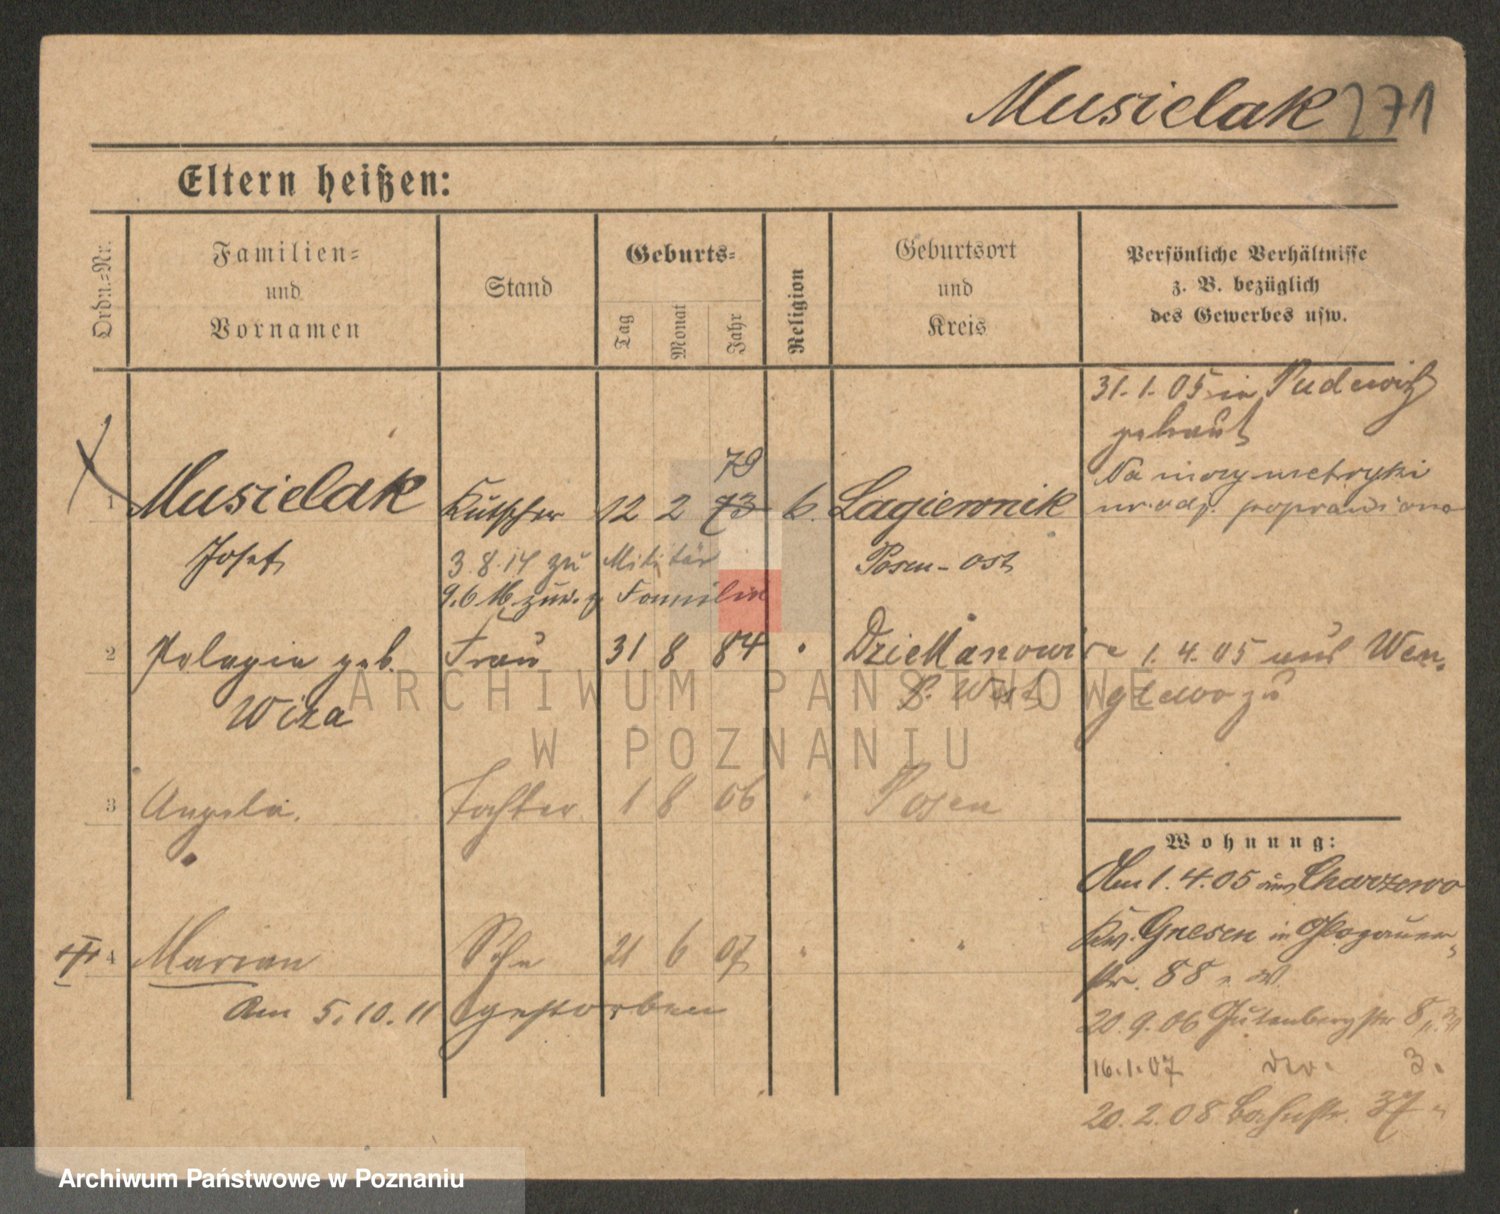 Musielak 271
Eltern heißen:
Ordn.=Nr.
Familien=
und
Vornamen
Stand
Geburts=
Tag
Monat
Jahr
Religion
Geburtsort
und
Kreis
Persönliche Verhältnisse
z. B. bezüglich
des Gewerbes usw.
31.1.05 in Pudewitz
getraut
Na mocy metryki
ur. poprawiono
79
1 Musielak Kutscher 12 2 73 k. Lagiewnik
Josef 3.8.14 zu Militär Posen-Ost
9.6.16 zur. z. Familie
2 Pelagia geb. Frau 31 8 84 Dziekanowice 1.4.05 aus Wen-
Wiza P. West glewo zu
3 Angela. Tochter 1 8 06 Posen
Wohnung:
Am 1.4.05 aus Charzewo
Kr. Gnesen in Glogauer-
4 Marian Sohn 21 6 07
str. 88
Am 5.10.11 gestorben
20.9.06 Gutenbergstr 8
16.1.07 3.
20.2.08 Bahnstr. 37
ARCHIWUM PAŃSTWOWE
W POZNANIU
Archiwum Państwowe w Poznaniu